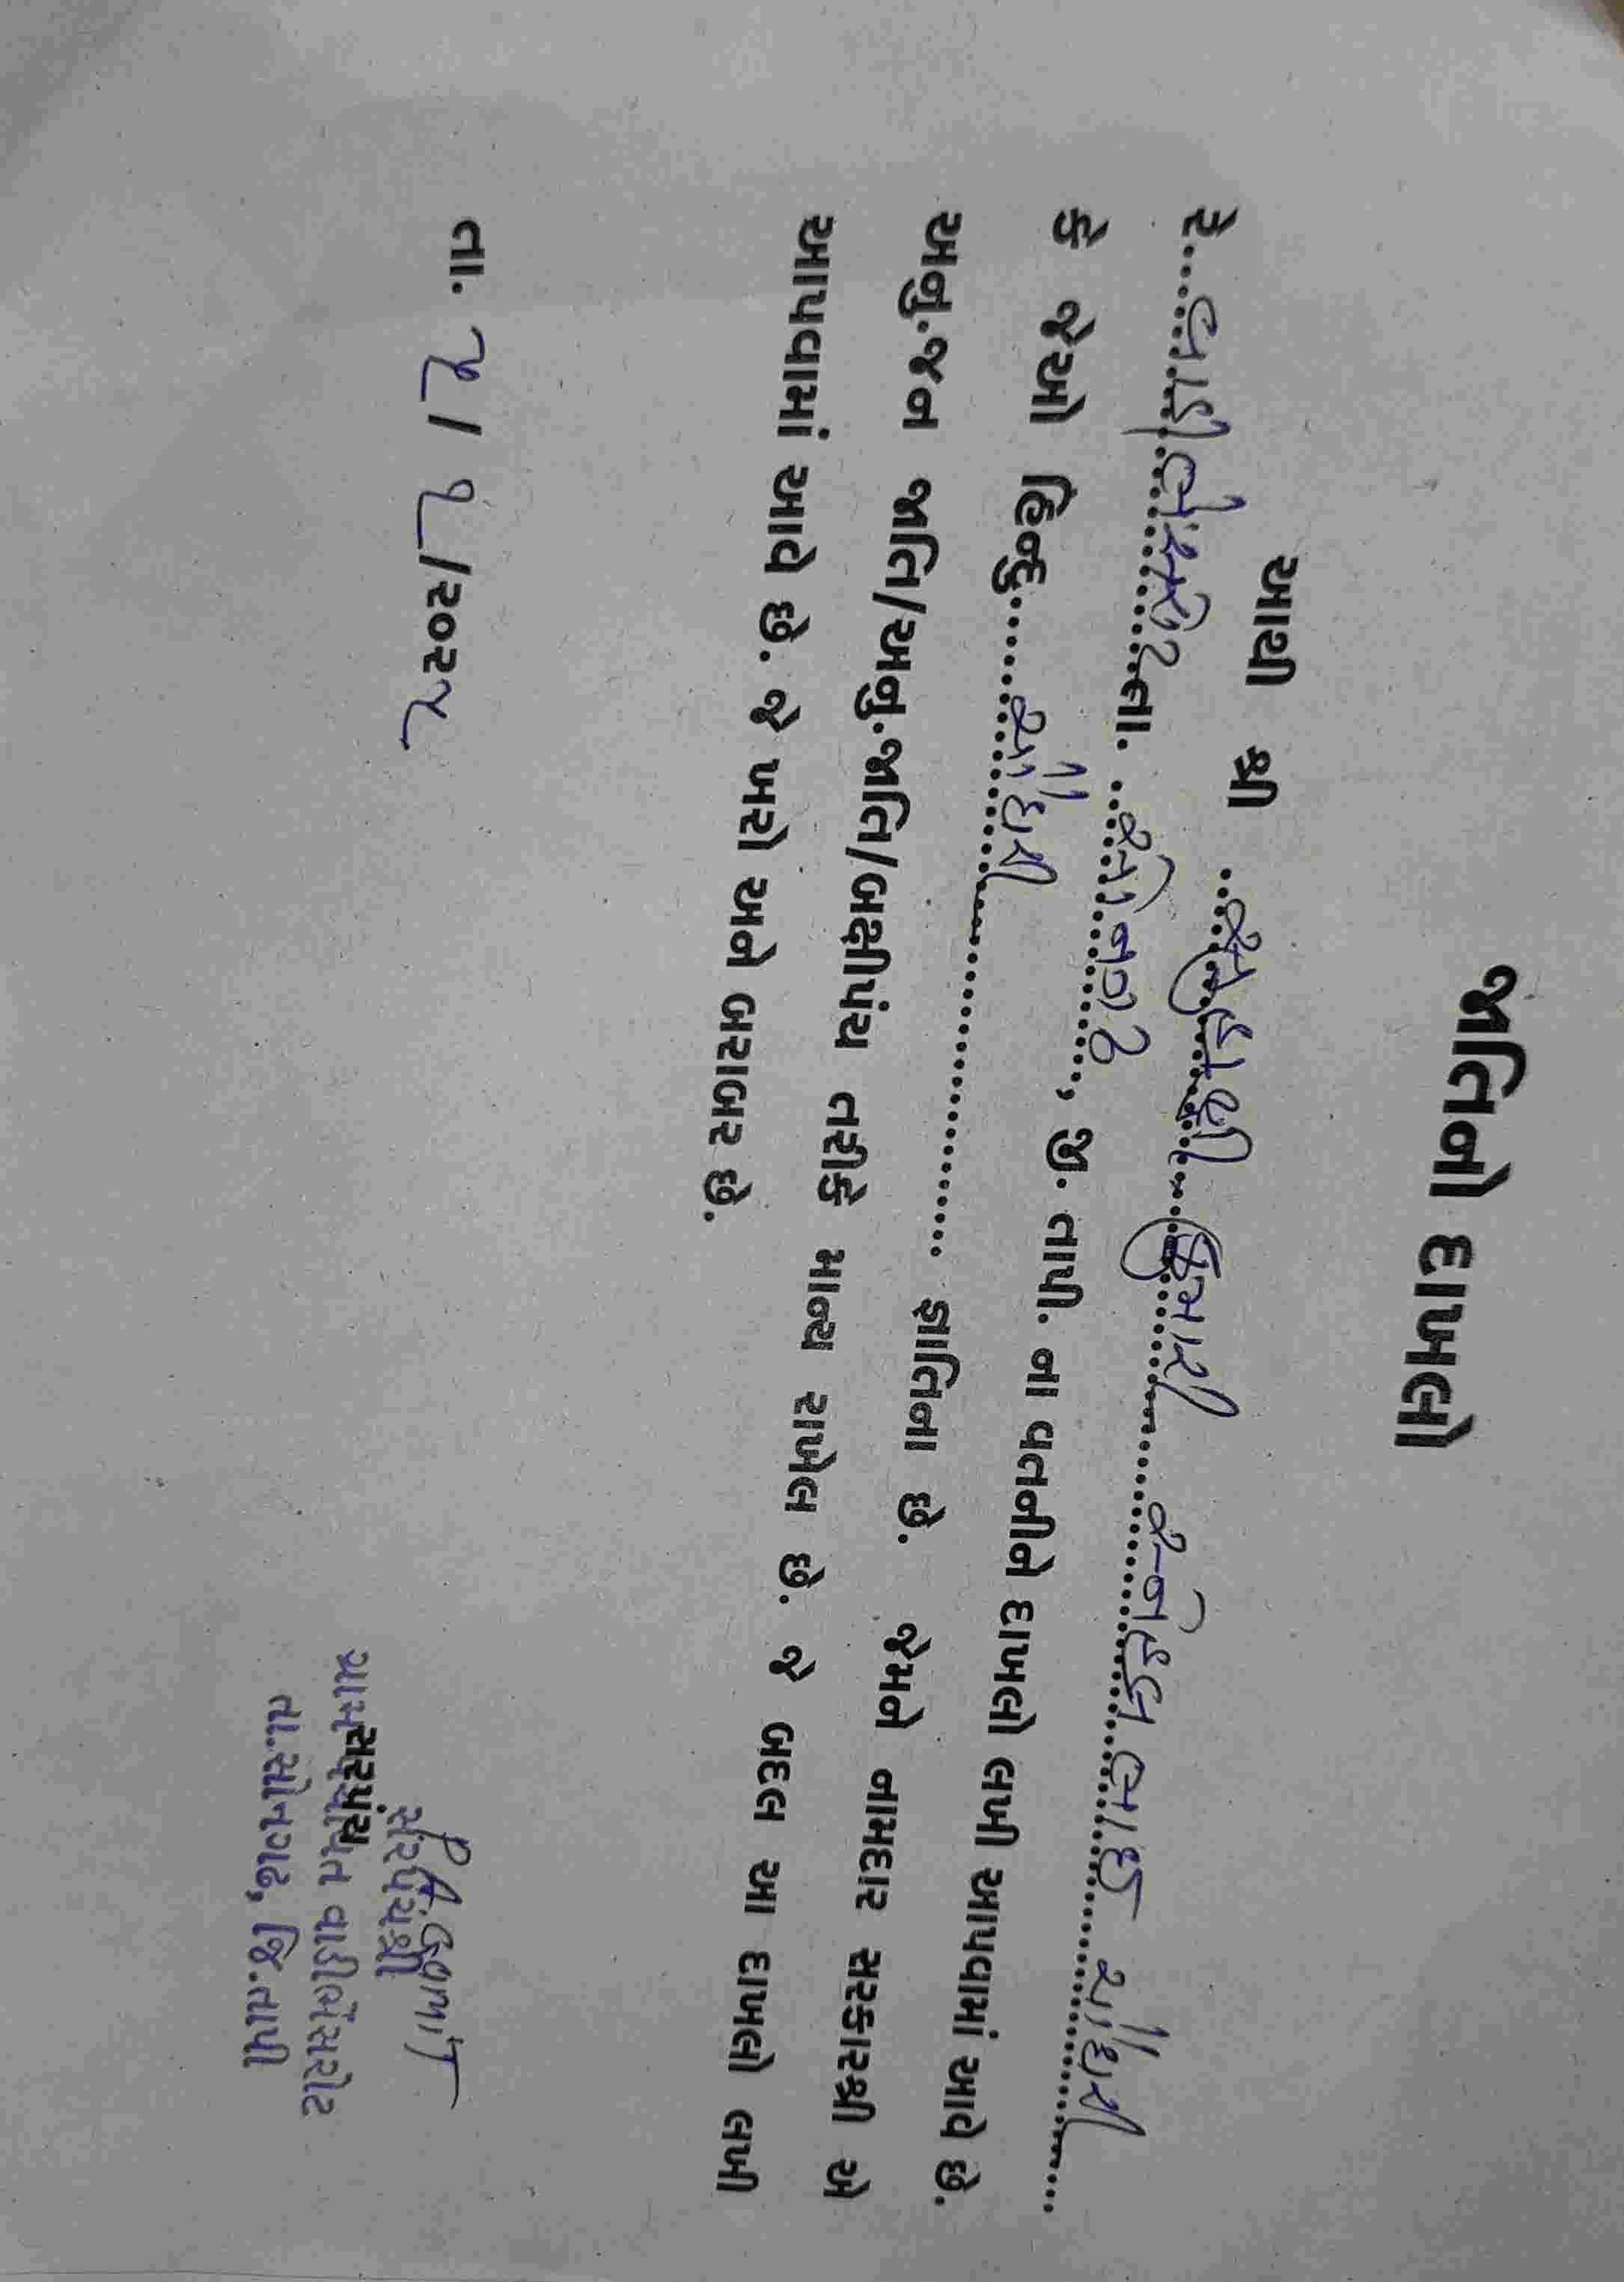 જાતિનો દાખલો
આથી શ્રી ...સુનુલાથી... કુમાર ........ સ્નેહલ ભાઈ ચૌધરી ......
રે..... વાડી ભેંસરોટ તા. ..સોનગઢ.., જી. તાપી. ના વતનીને દાખલો લખી આપવામાં આવે છે.
કે જેઓ હિન્દુ........ ચૌધરી .................... જ્ઞાતિના છે. જેમને નામદાર સરકારશ્રી એ
અનુ.જન જાતિ/અનુ.જાતિ/બક્ષીપંચ તરીકે માન્ય રાખેલ છે. જે બદલ આ દાખલો લખી
આપવામાં આવે છે. જે ખરો અને બરાબર છે.
તા. ૫ / ૧ /૨૦૨૫
RA Gamit
સરપંચશ્રી
સરપંચ
ગ્રામ પંચાયત વાડીભેંસરોટ
તા.સોનગઢ, જિ.તાપી